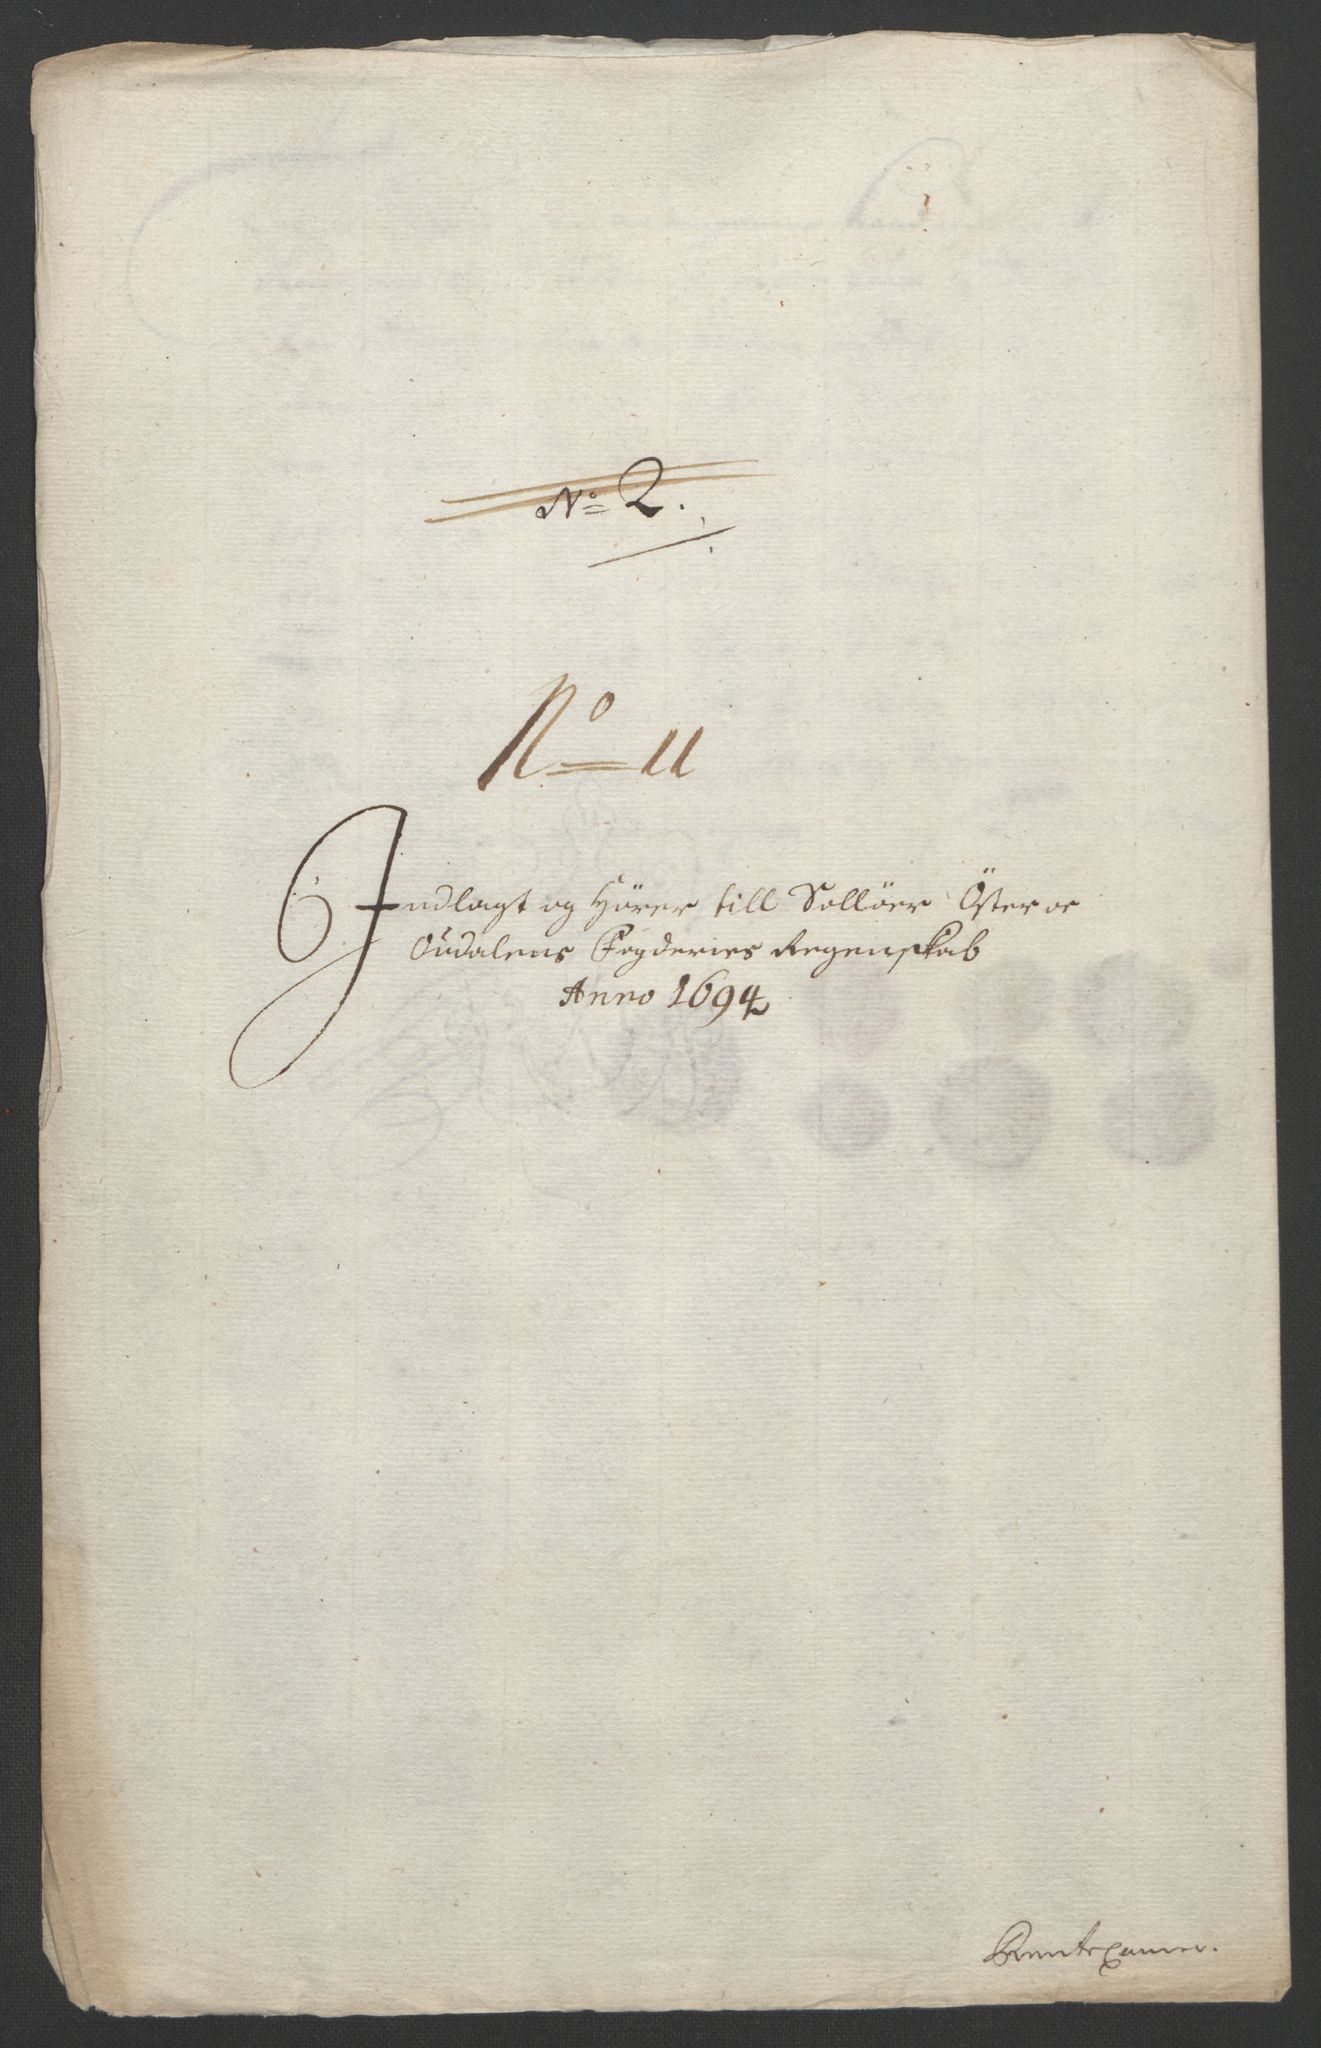 No 2.
No 11
Indlagt og Hörer till Sollöer Öster oc
Oudalens Fogderies Regenskab
Anno 1694